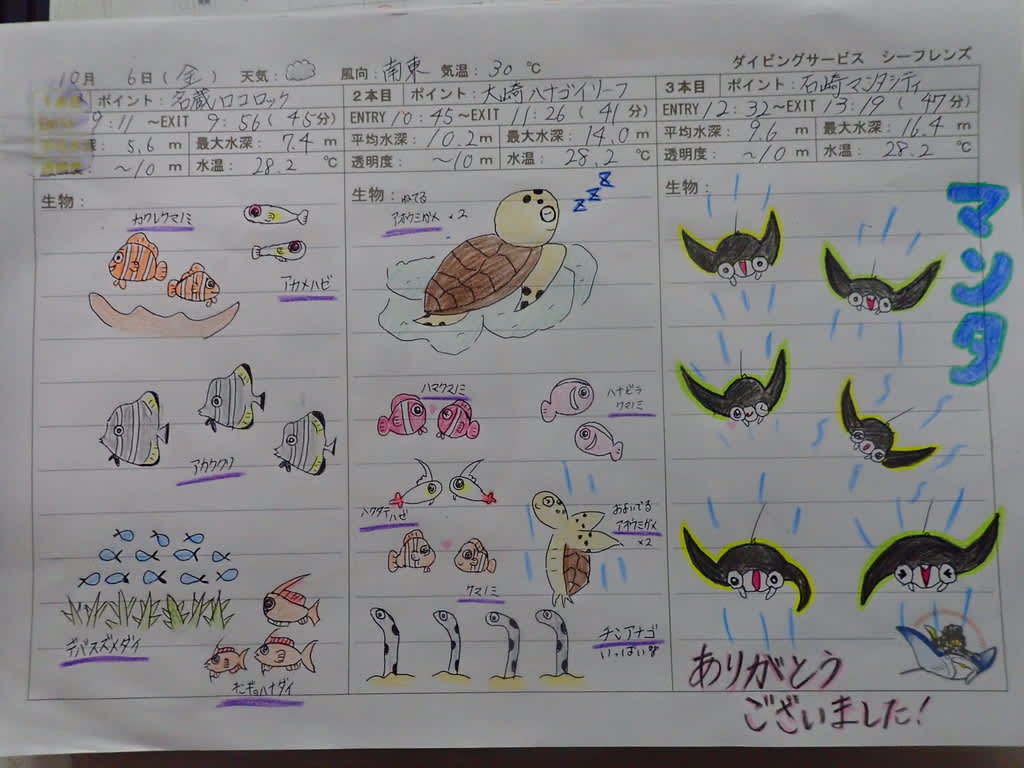 ダイビングサービス シーフレンズ
10月 6日(金) 天気: 風向:南東 気温:30℃
1本目 ポイント:名蔵ハロコロック
ENTRY 9:11 ～EXIT 9:56(45分)
平均水深: 5.6 m 最大水深: 7.4 m
透明度: ～10 m 水温: 28.2 ℃
生物:
カクレクマノミ
アカメハゼ
デバスズメダイ
キンギョハナダイ
2本目 ポイント:大崎ハナゴイリーフ
ENTRY 10:45～EXIT 11:26(41分)
平均水深: 10.2m 最大水深: 14.0m
透明度: ～10 m 水温: 28.2℃
生物:ねてる
アオウミガメ×2
zzz
ハマクマノミ
ハナビラ
クマノミ
ハタタテハゼ
およいでる
アオウミガメ
×2
クマノミ
チンアナゴ
いっぱい
3本目 ポイント:石崎マンタシティ
ENTRY 12:32～EXIT 13:19(47分)
平均水深: 9.6 m 最大水深: 16.4 m
透明度: ～10 m 水温: 28.2℃
生物:
マンタ
ありがとう
ございました!